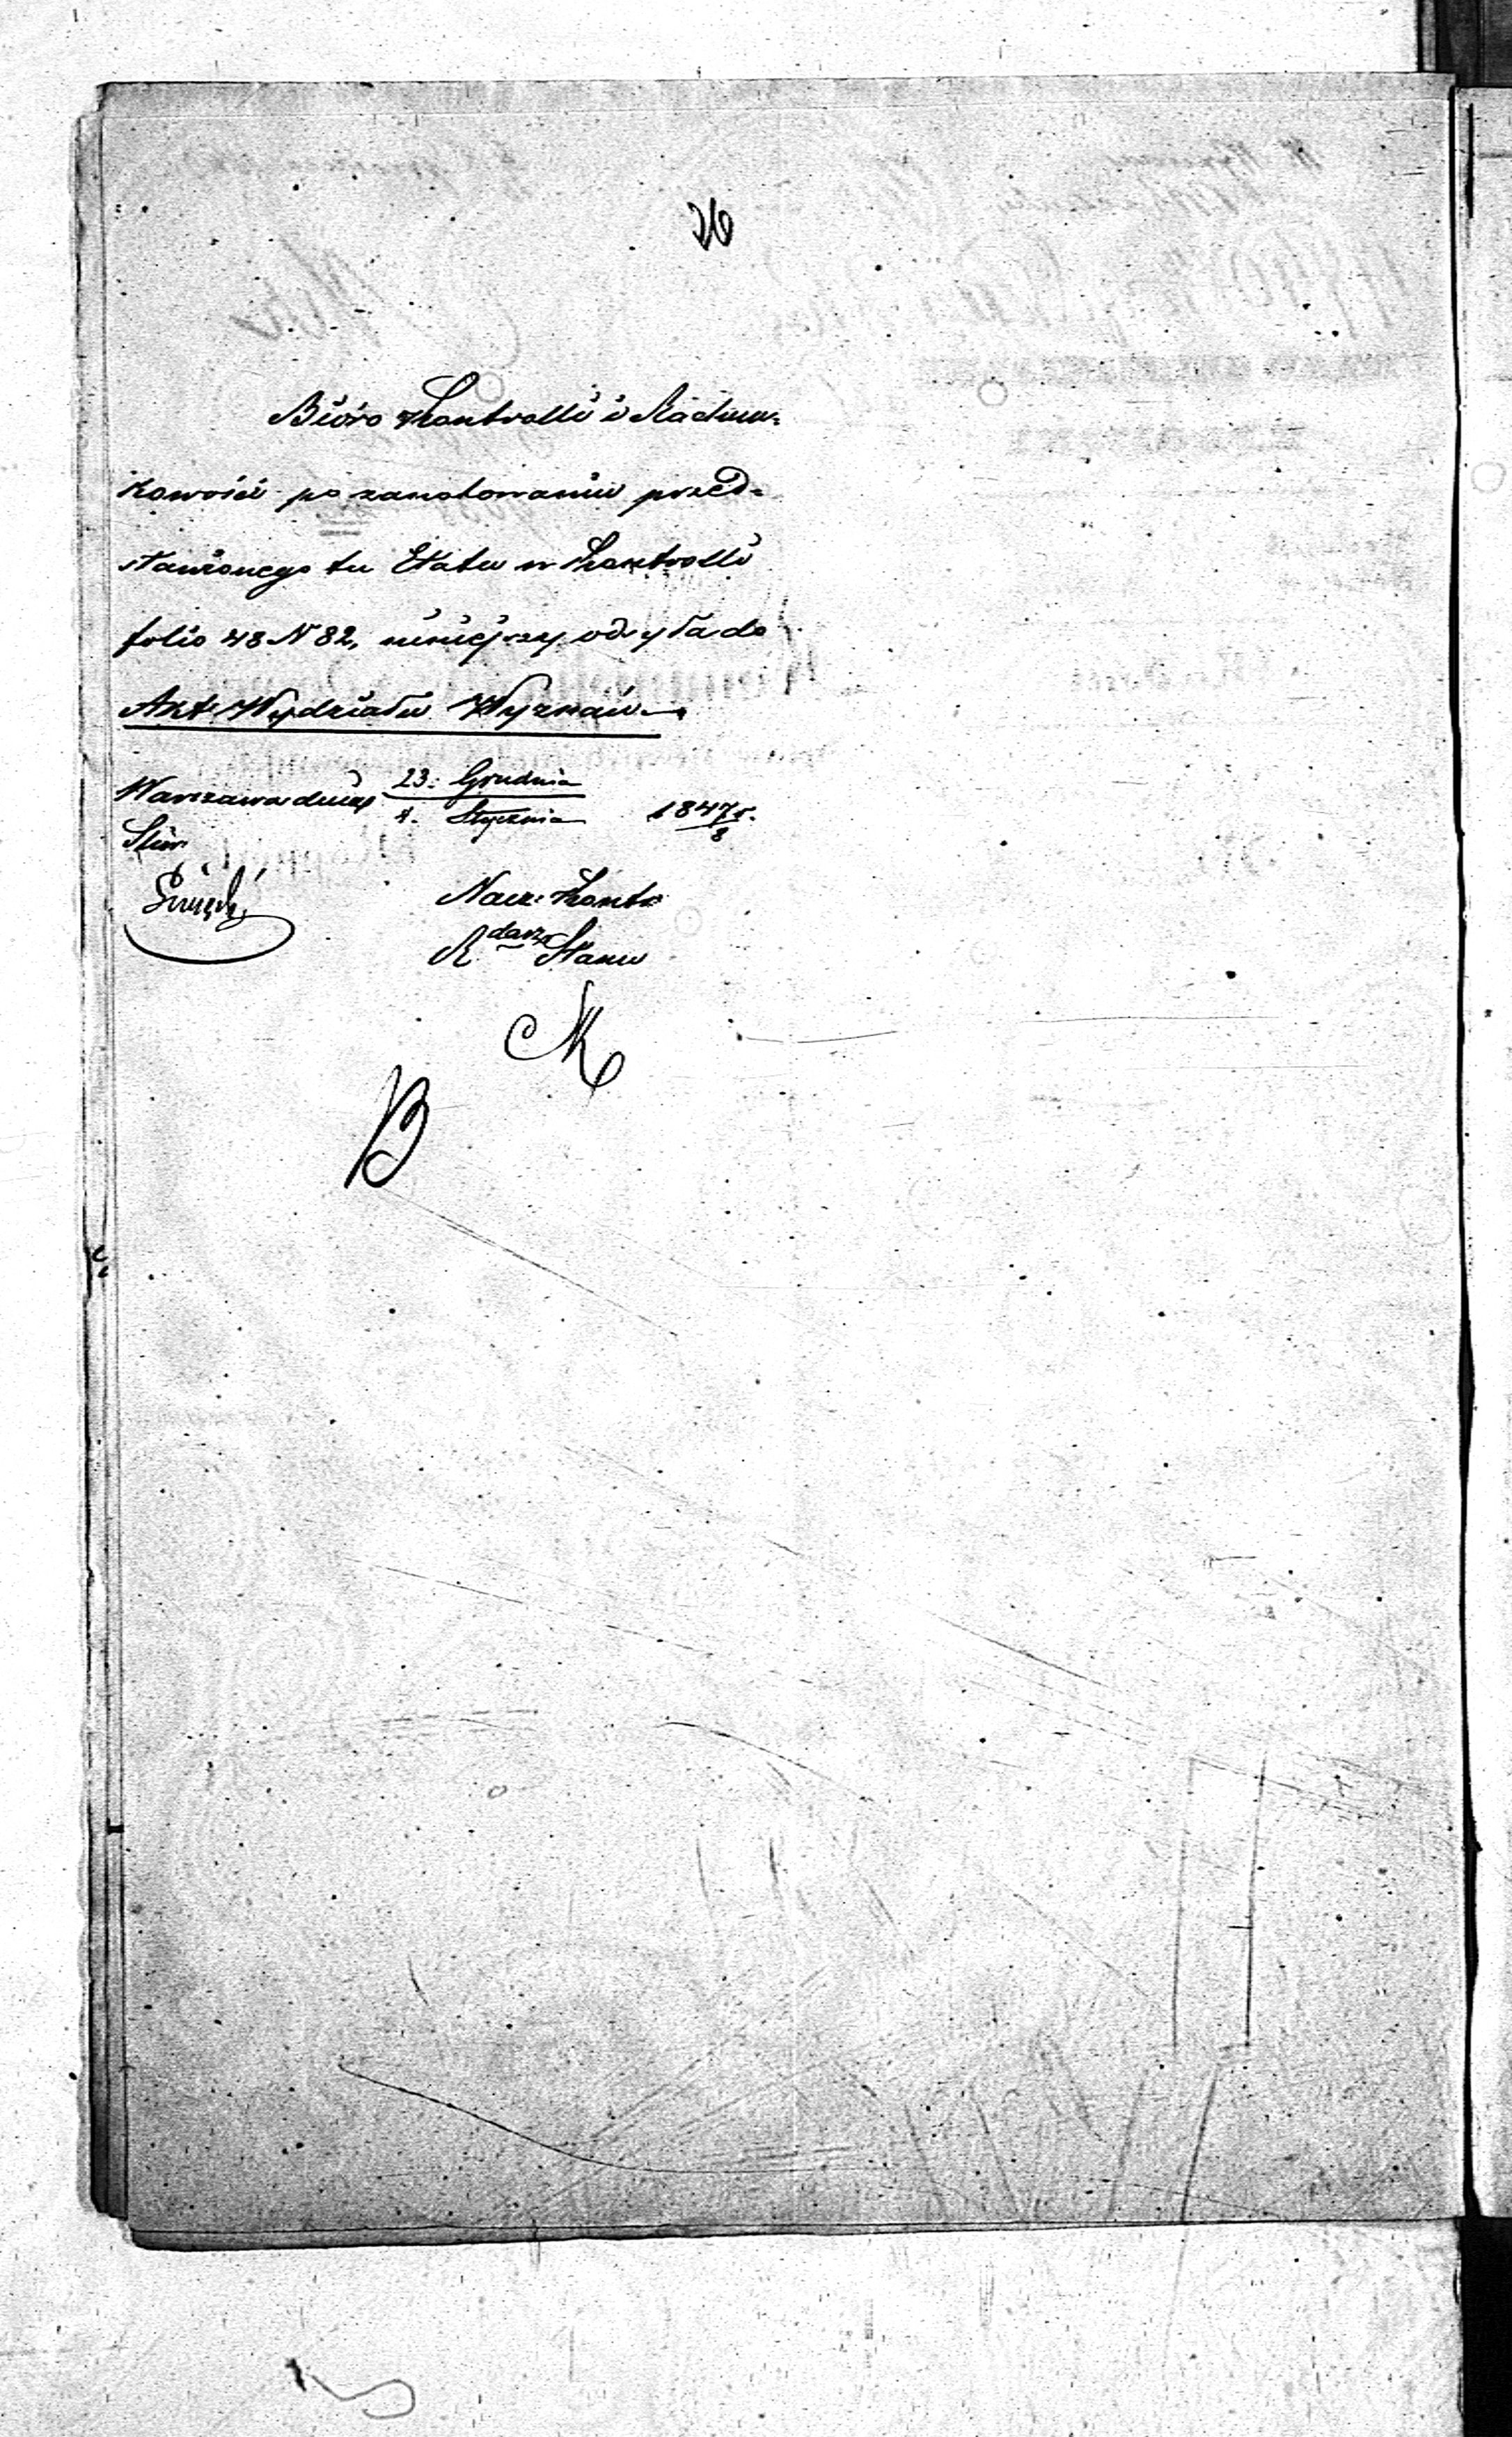 26
Biόro Kontrolli i Rachun=
kowości po zanotowaniu przed=
stawionego tu Etatu w Kontrolli
folio 48 N 82, niniejszy odsyła do
Akt Wydziału Wyznań
Warszawa dnia 23: Grudnia / 4. Stycznia 1847/8 r.
Nacz: Kontr:
R darz Stanu
B